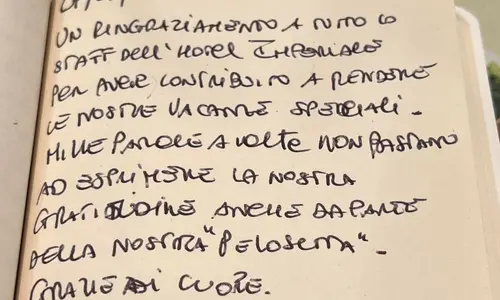 UN RINGRAZIAMENTO A TUTTO LO
STAFF DELL'HOTEL IMPERIALE
PER AVER CONTRIBUITO A RENDERE
LE NOSTRE VACANZE SPECIALI.
MILLE PAROLE A VOLTE NON BASTANO
AD ESPRIMERE LA NOSTRA
GRATITUDINE ANCHE DA PARTE
DELLA NOSTRA "PELOSETTA".
GRAZIE DI CUORE.